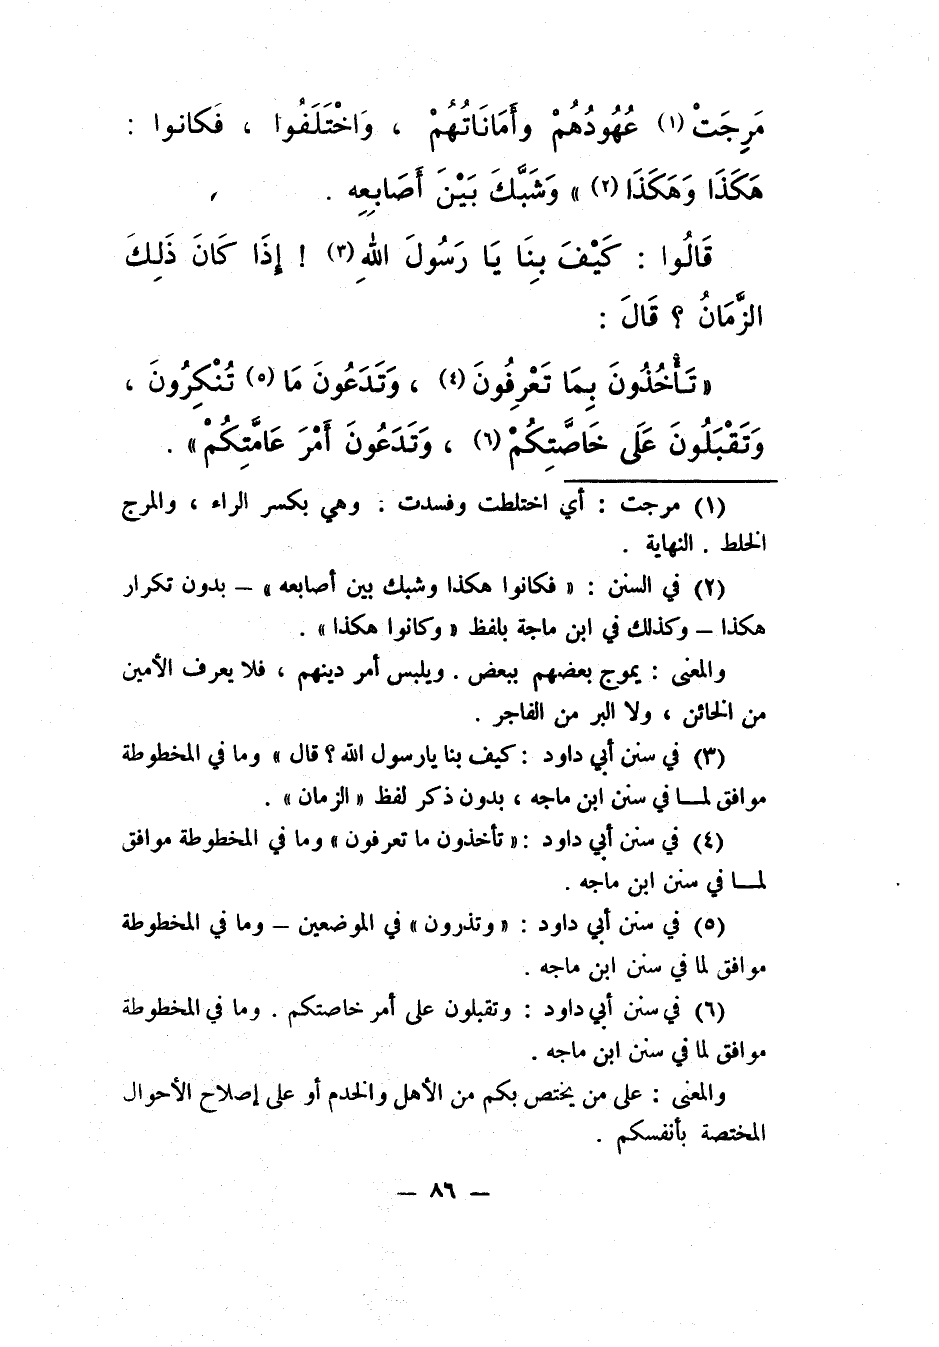 مَرِجَتْ (١) عُهُودُهُمْ وأَمَانَاتُهُمْ ، وَاخْتَلَفُوا ، فَكانوا :
هَكَذَا وَهَكَذَا (٢) » وَشَبَّكَ بَيْنَ أَصَابِعِه .
قَالُوا : كَيْفَ بِنَا يَا رَسُولَ اللهِ (٣) ! إِذَا كَانَ ذَلِكَ
الزَّمَانُ ؟ قَالَ :
« تَأْخُذُونَ بِمَا تَعْرِفُونَ (٤) ، وَتَدَعُونَ مَا (٥) تُنْكِرُونَ ،
وَتَقْبَلُونَ عَلَى خَاصَّتِكُمْ (٦) ، وَتَدَعُونَ أَمْرَ عَامَّتِكُمْ » .
(١) مرجت : أي اختلطت وفسدت : وهي بكسر الراء ، والمرج
الخلط . النهاية .
(٢) في السنن : « فكانوا هكذا وشبك بين أصابعه » – بدون تكرار
هكذا – وكذلك في ابن ماجة بلفظ « وكانوا هكذا » .
والمعنى : يموج بعضهم ببعض . ويلبس أمر دينهم ، فلا يعرف الأمين
من الخائن ، ولا البر من الفاجر .
(٣) في سنن أبي داود : كيف بنا يارسول الله ؟ قال » وما في المخطوطة
موافق لمــا في سنن ابن ماجه ، بدون ذكر لفظ « الزمان » .
(٤) في سنن أبي داود : « تأخذون ما تعرفون » وما في المخطوطة موافق
لمــا في سنن ابن ماجه .
(٥) في سنن أبي داود : « وتذرون » في الموضعين – وما في المخطوطة
موافق لما في سنن ابن ماجه .
(٦) في سنن أبي داود : وتقبلون على أمر خاصتكم . وما في المخطوطة
موافق لما في سنن ابن ماجه .
والمعنى : على من يختص بكم من الأهل والخدم أو على إصلاح الأحوال
المختصة بأنفسكم .
– ٨٦ –